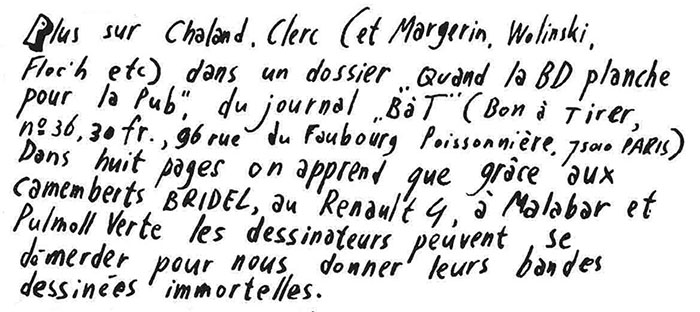 Plus sur Chaland, Clerc (et Margerin, Wolinski,
Floc'h etc) dans un dossier "Quand la BD planche
pour la Pub", du journal "BàT" (Bon à Tirer,
n° 36, 30 fr., 96 rue du Faubourg Poissonnière, 75010 PARIS)
Dans huit pages on apprend que grâce aux
camemberts BRIDEL, au Renault 4, à Malabar et
Pulmoll Verte les dessinateurs peuvent se
démerder pour nous donner leurs bandes
dessinées immortelles.